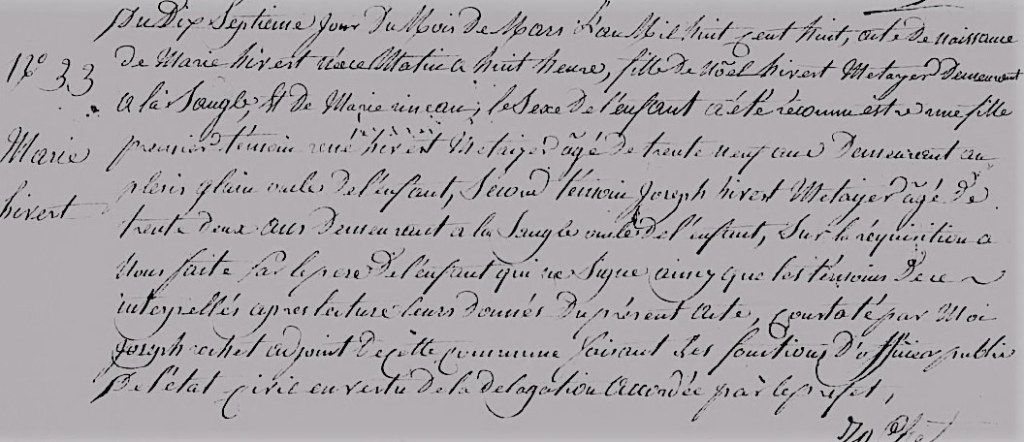 Du Dix Septieme Jour Du Mois De Mars L'an Mil huit Cent huit, acte de naissance
N° 33
de Marie hivert née ce Matin a huit heure, fille De Noël hivert Metayer Demeurant
a la Saugle, Et De Marie rineau; le Sexe De l'enfant a été réconnu estre une fille
Marie
premier témoin rené hivert Métaÿer âgé De trente neuf ans Demeurant au
plesis glain oncle De l'enfant, Second témoin Joseph hivert Metayer âgé De
hivert
trente deux ans Demeurant a la Saugle oncle De l'enfant, Sur la réquisition a
Nous faite Par le pere De l'enfant qui ne Signe ainsy que les témoins De ce
interpellés apres lecture leurs donnés Du présent acte, Constaté par Moi
Joseph rochet adjoint De cette Commune faisant Les fonctions D'officier public
De l'état Civil en vertu de la délagation accordée par le préfet,